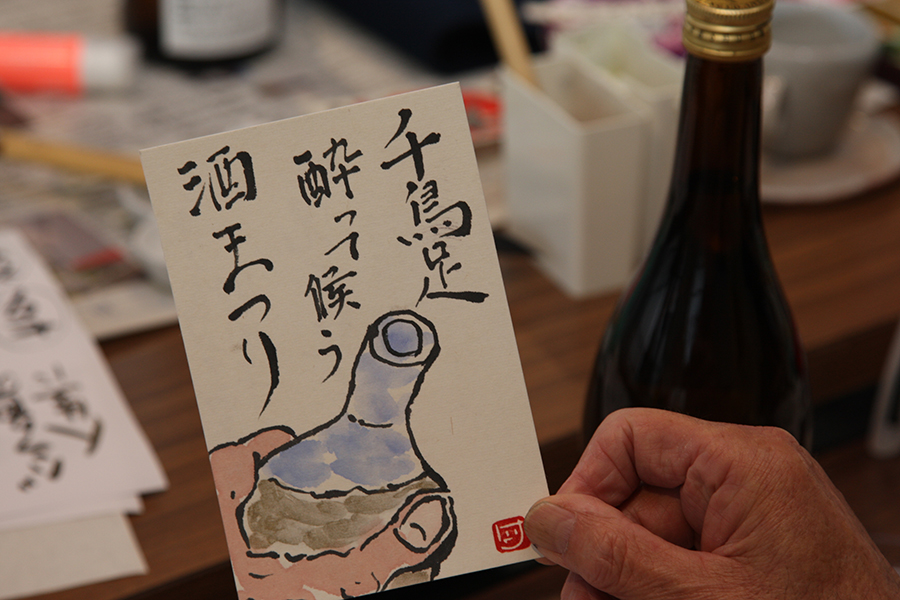 千鳥足
酔って候う
酒まつり